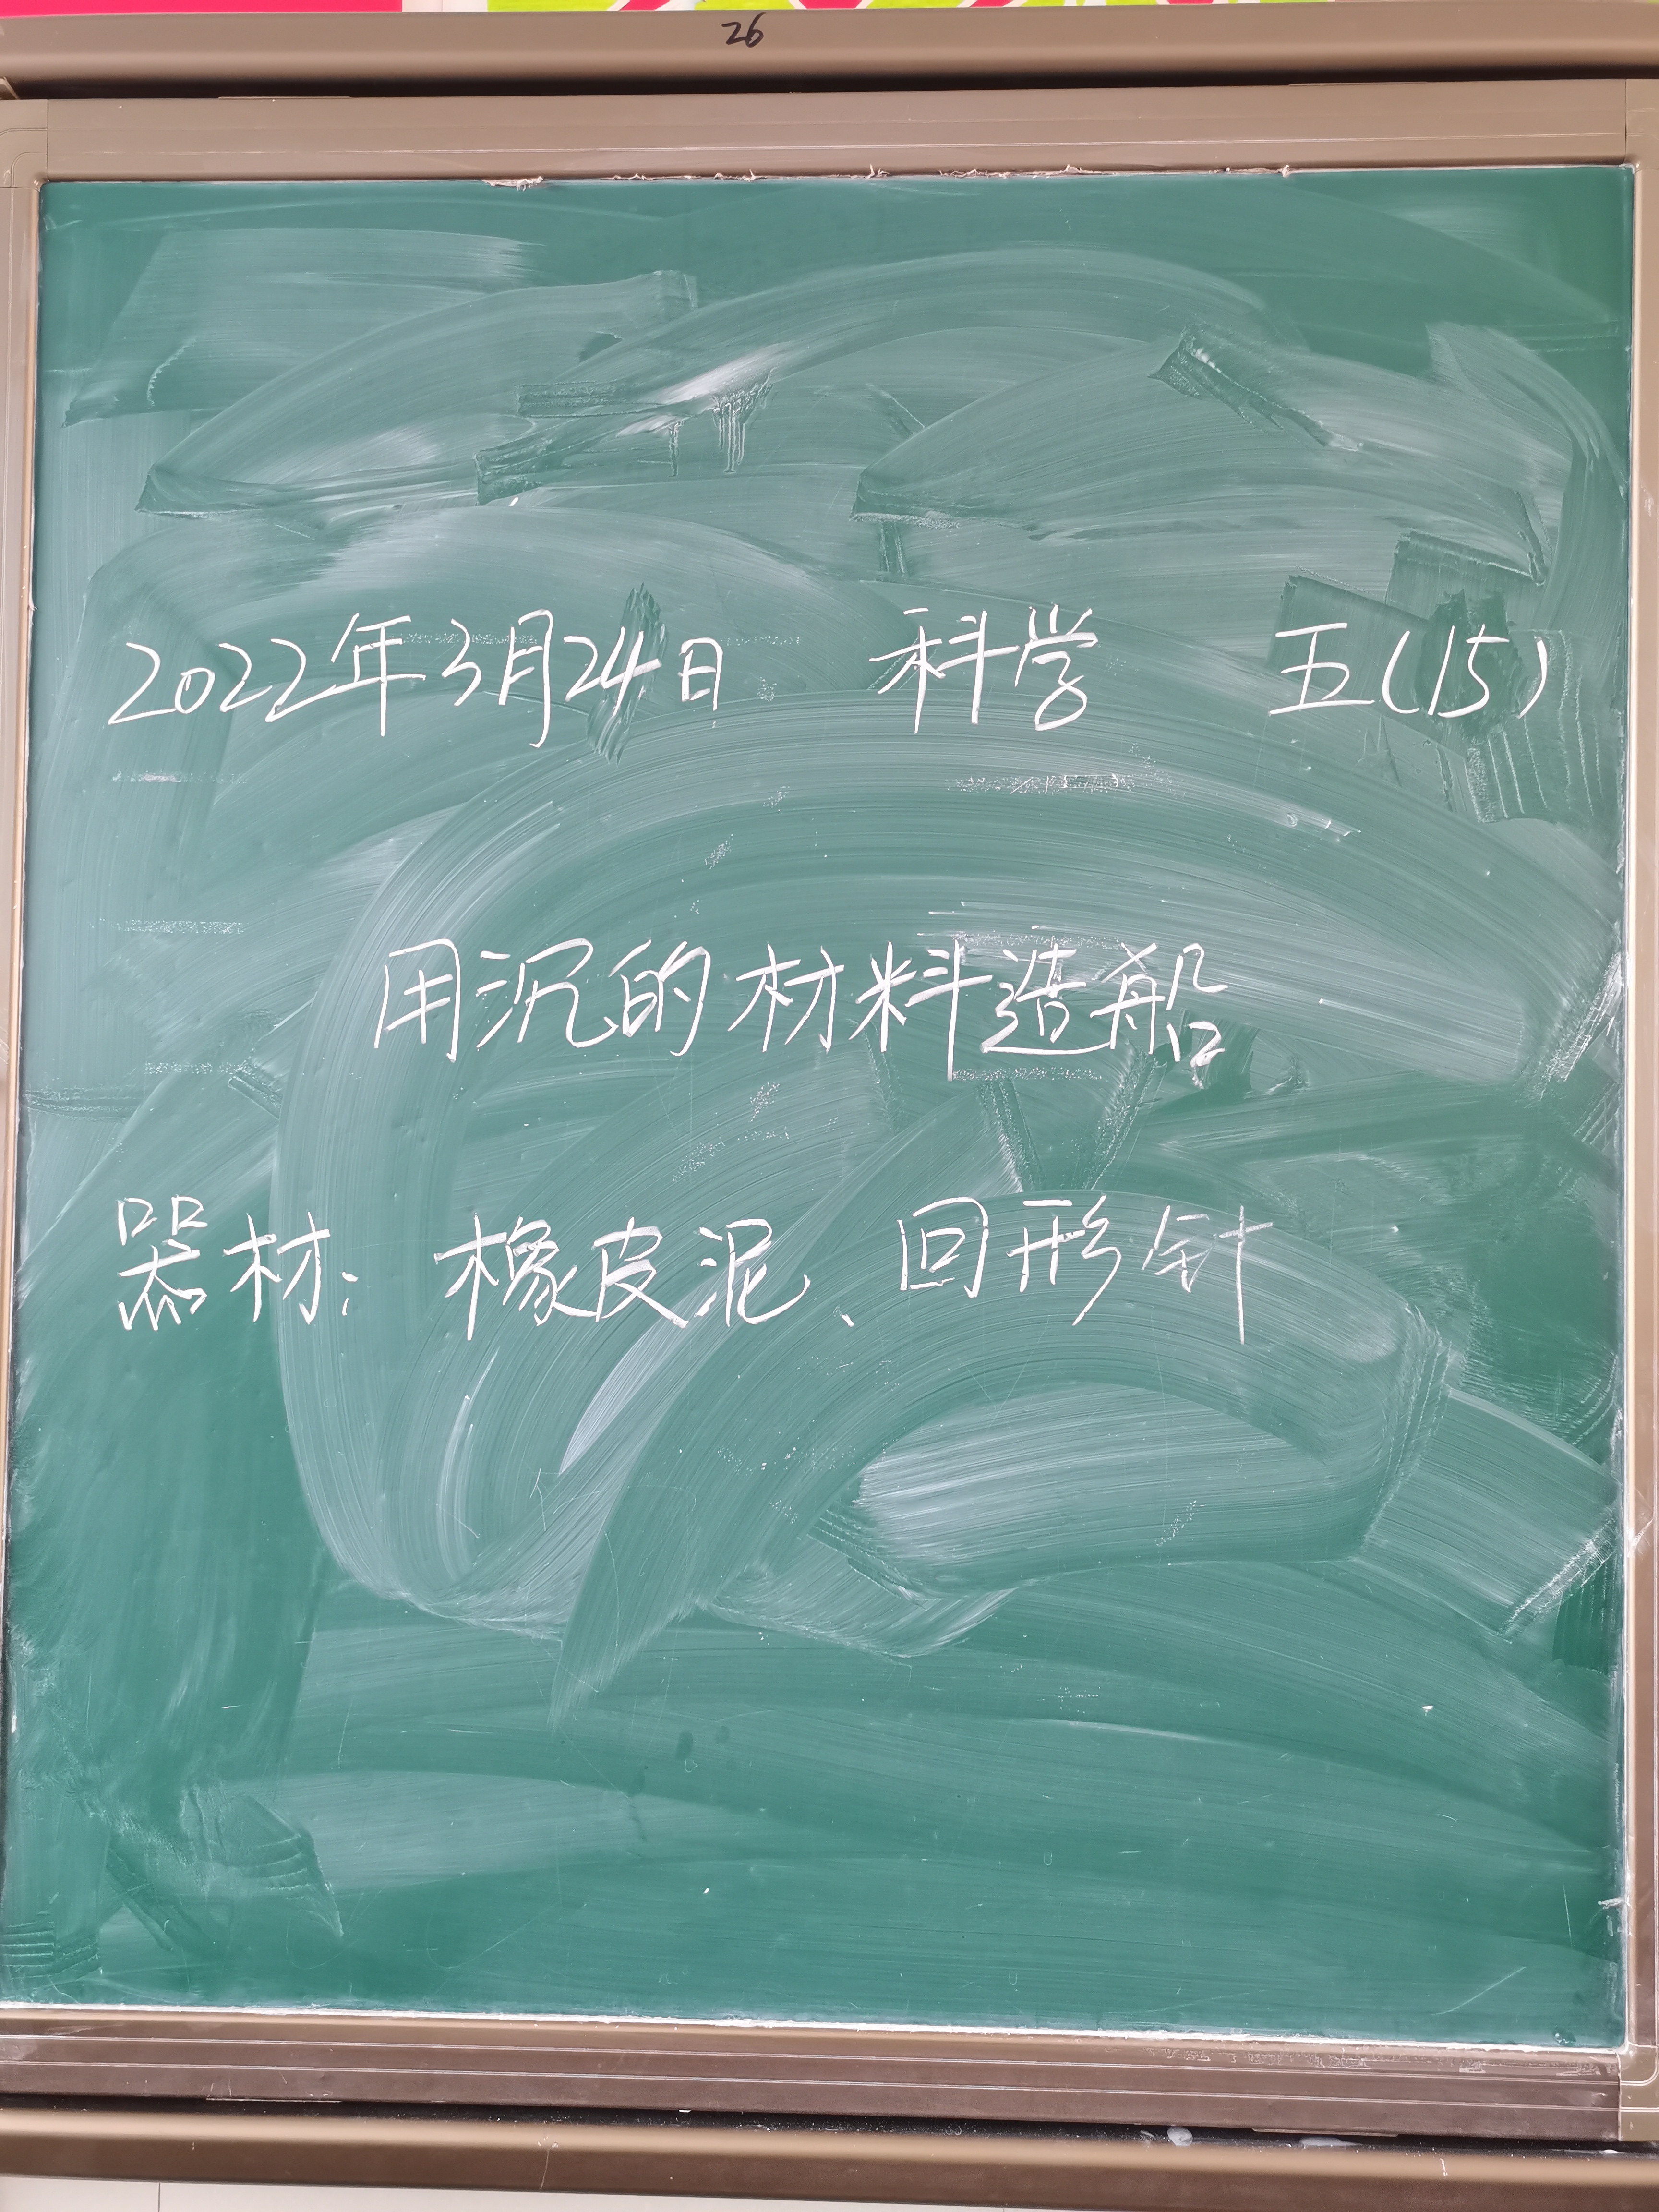 26
2022年3月24日 科学 五(15)
用沉的材料造船
器材: 橡皮泥、回形针